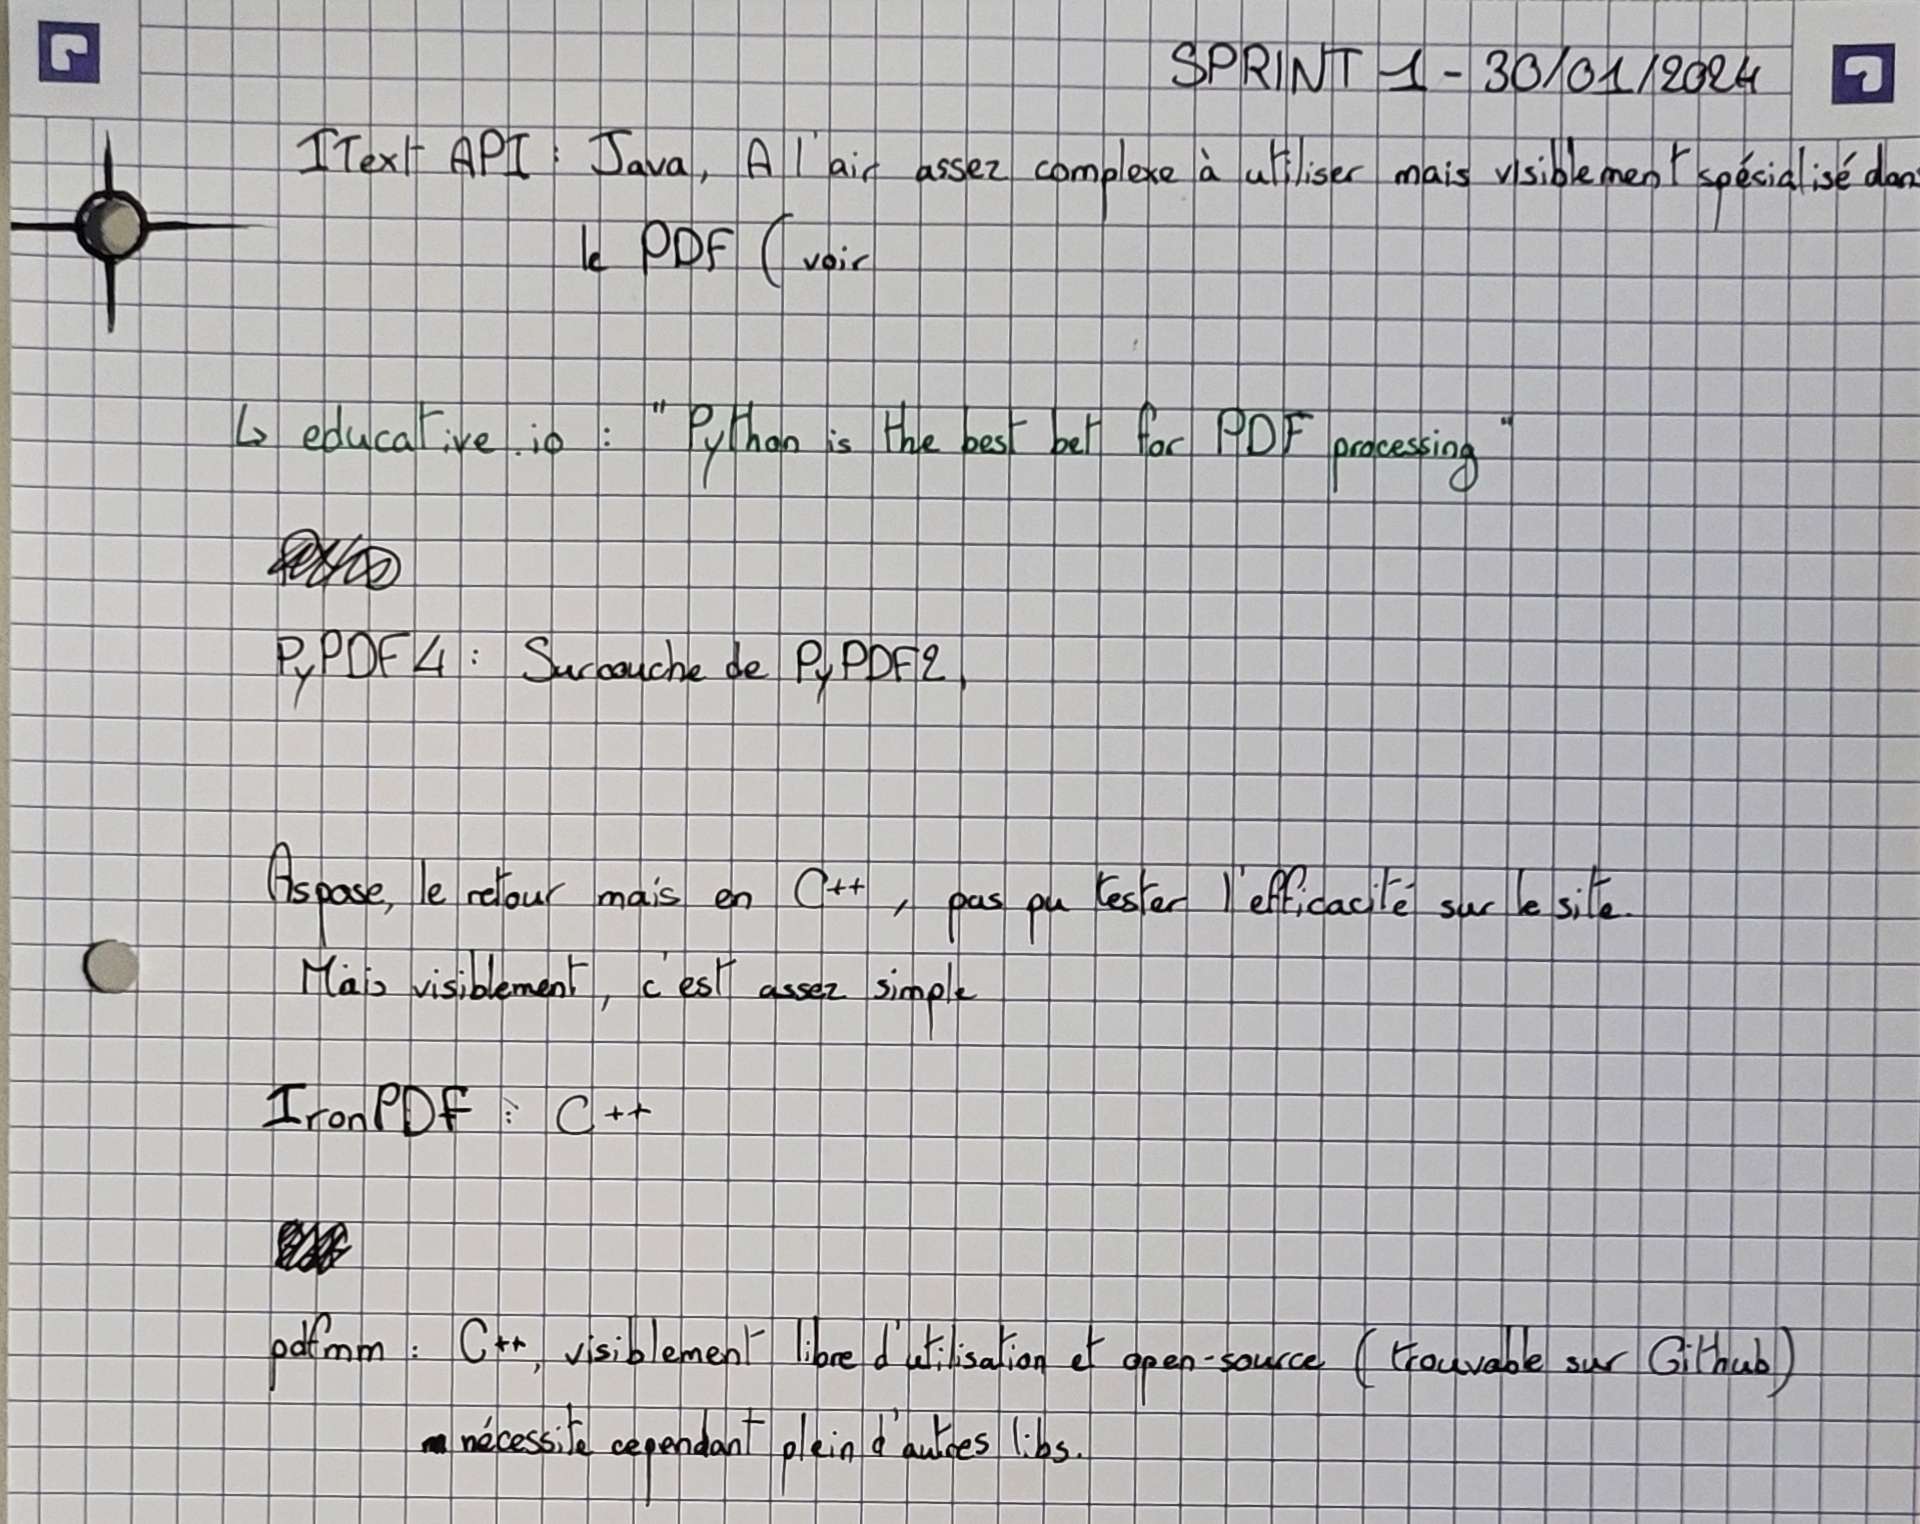 SPRINT 1 - 30/01/2024
IText API : Java, A l'air assez complexe à utiliser mais visiblement spécialisé dans
le PDF (voir
↳ educative.io : "Python is the best bet for PDF processing"
PyPDF4 : Surcouche de PyPDF2,
Aspose, le retour mais en C++, pas pu tester l'efficacité sur le site.
Mais visiblement, c'est assez simple
IronPDF : C++
pdfmm : C++, visiblement libre d'utilisation et open-source (trouvable sur Github)
nécessite cependant plein d'autres libs.